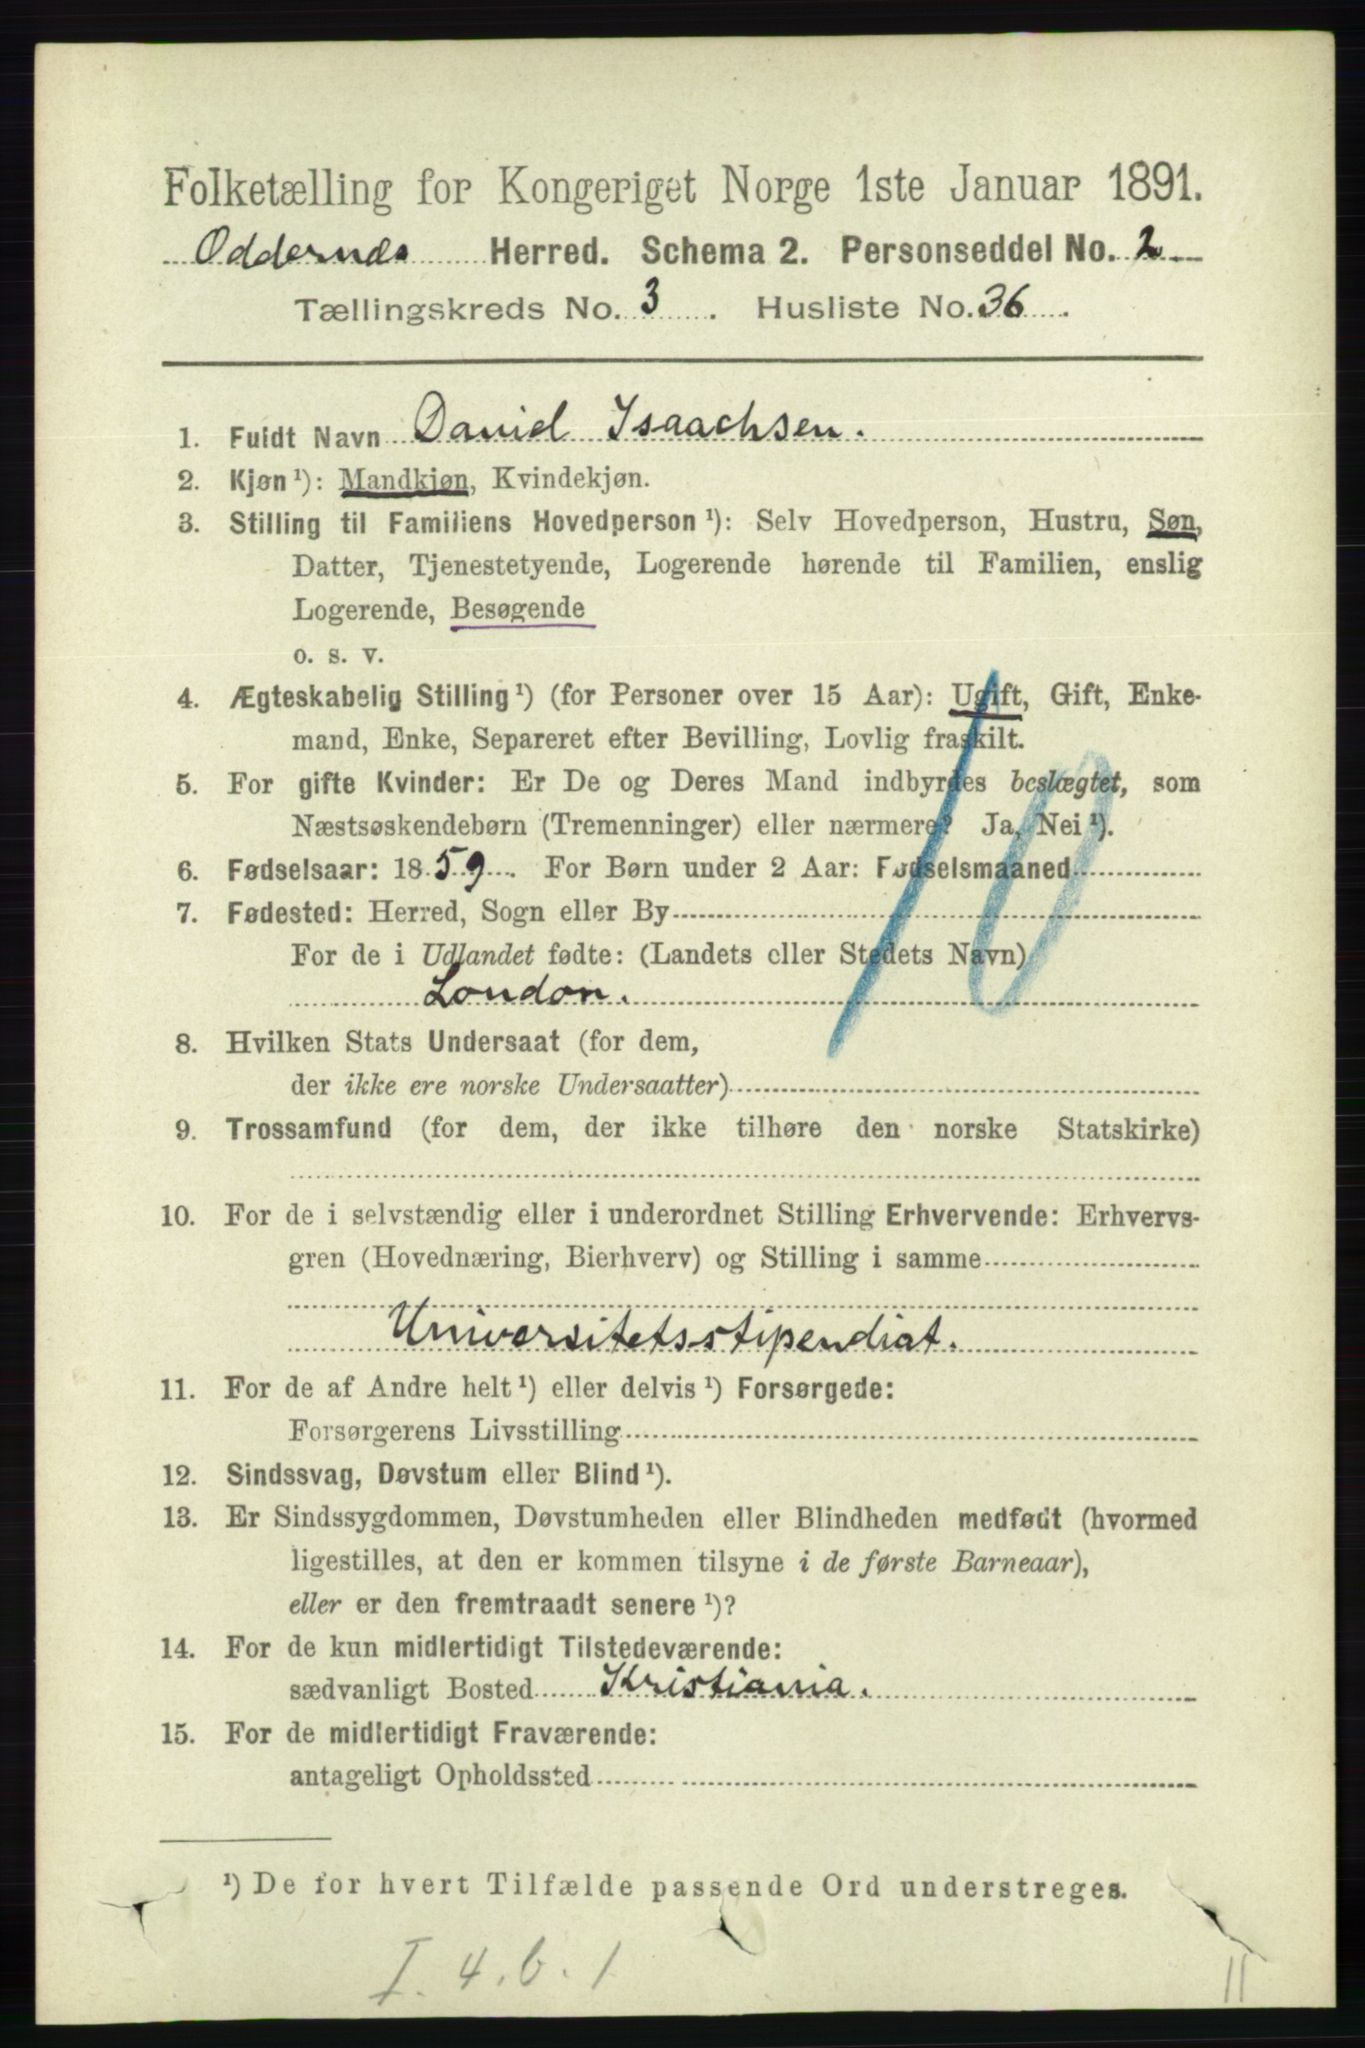 Folketælling for Kongeriget Norge 1ste Januar 1891.
Oddernes Herred. Schema 2. Personseddel No. 2
Tællingskreds No. 3. Husliste No. 36.
1. Fuldt Navn David Isaachsen.
2. Kjøn ¹): Mandkjøn, Kvindekjøn.
3. Stilling til Familiens Hovedperson ¹): Selv Hovedperson, Hustru, Søn,
Datter, Tjenestetyende, Logerende hørende til Familien, enslig
Logerende, Besøgende
o. s. v.
4. Ægteskabelig Stilling ¹) (for Personer over 15 Aar): Ugift, Gift, Enke-
mand, Enke, Separeret efter Bevilling, Lovlig fraskilt.
5. For gifte Kvinder: Er De og Deres Mand indbyrdes beslægtet, som
Næstsøskendebørn (Tremenninger) eller nærmere? Ja, Nei ¹).
10
6. Fødselsaar: 1859. For Børn under 2 Aar: Fødselsmaaned
7. Fødested: Herred, Sogn eller By
For de i Udlandet fødte: (Landets eller Stedets Navn)
London.
8. Hvilken Stats Undersaat (for dem,
der ikke ere norske Undersaatter)
9. Trossamfund (for dem, der ikke tilhøre den norske Statskirke)
10. For de i selvstændig eller i underordnet Stilling Erhvervende: Erhvervs-
gren (Hovednæring, Bierhverv) og Stilling i samme
Universitetsstipendiat.
11. For de af Andre helt ¹) eller delvis ¹) Forsørgede:
Forsørgerens Livsstilling
12. Sindssvag, Døvstum eller Blind ¹).
13. Er Sindssygdommen, Døvstumheden eller Blindheden medfødt (hvormed
ligestilles, at den er kommen tilsyne i de første Barneaar),
eller er den fremtraadt senere ¹)?
14. For de kun midlertidigt Tilstedeværende:
sædvanligt Bosted Kristiania.
15. For de midlertidigt Fraværende:
antageligt Opholdssted
¹) De for hvert Tilfælde passende Ord understreges.
I. 4. b. 1
11